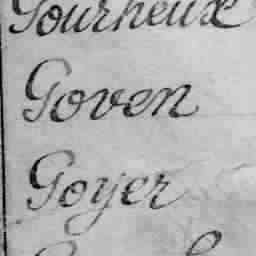 Gourheux
Goven
Goyer